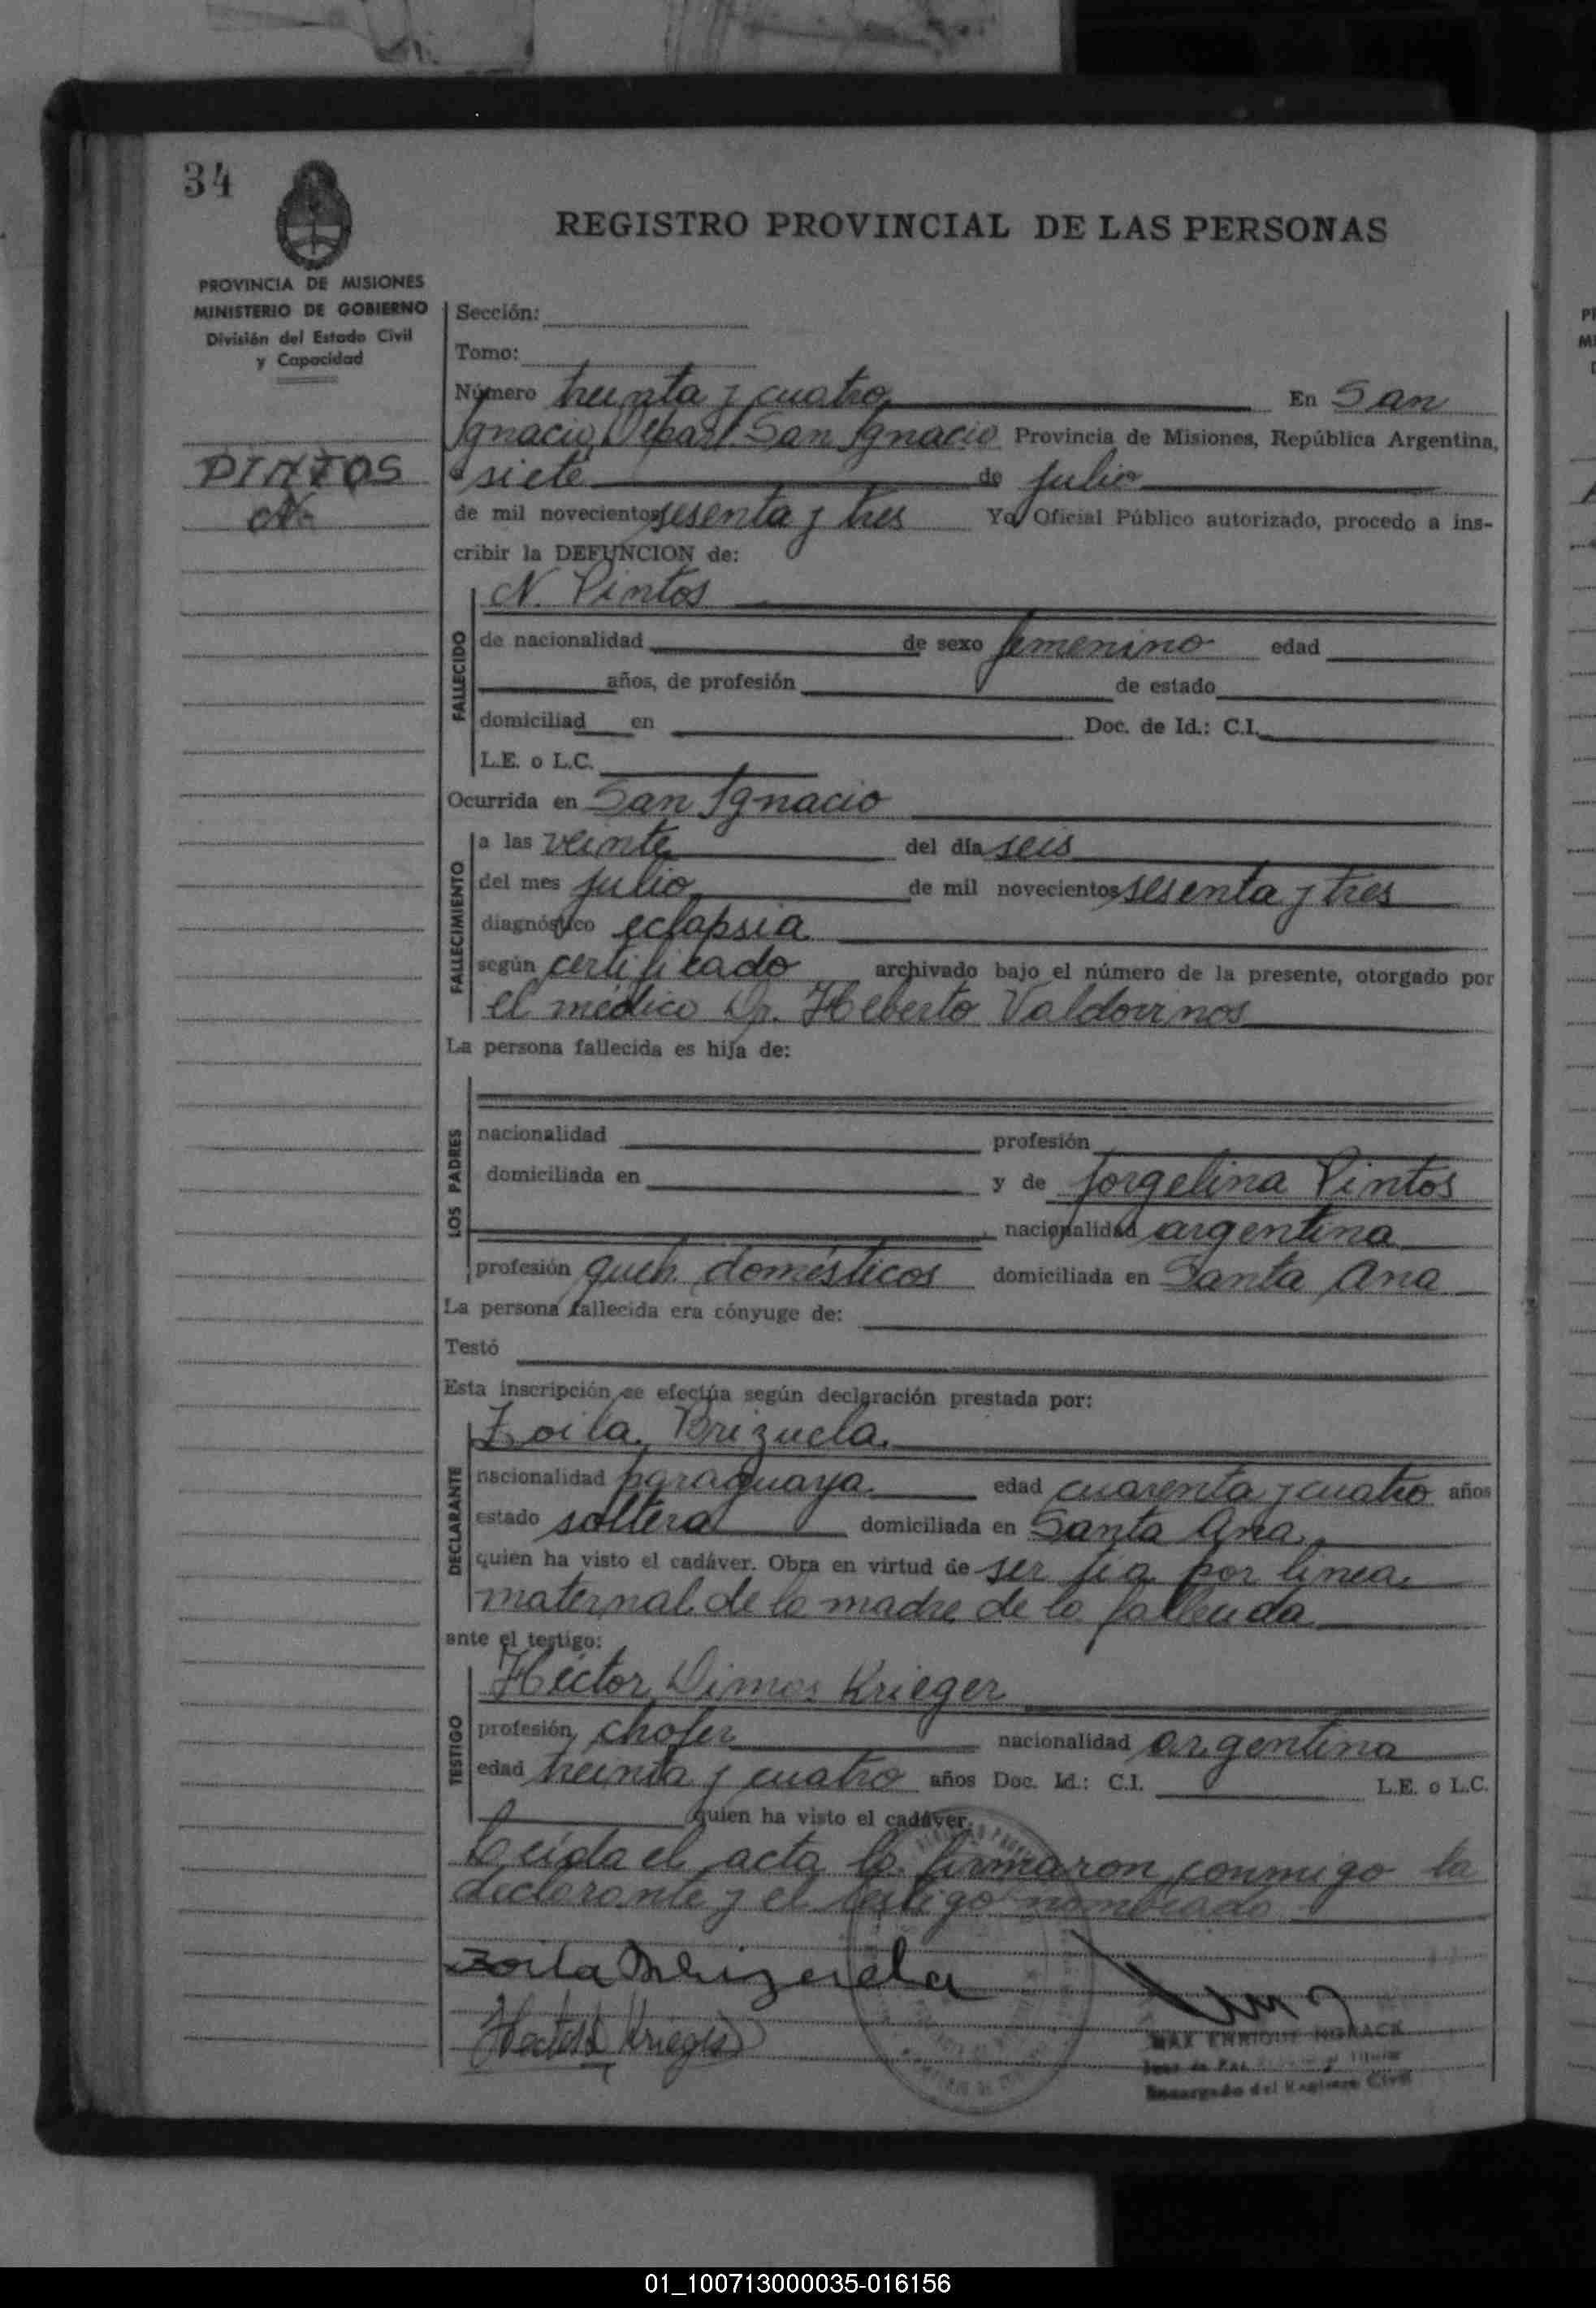 34
REGISTRO PROVINCIAL DE LAS PERSONAS
PROVINCIA DE MISIONES
MINISTERIO DE GOBIERNO
División del Estado Civil
y Capacidad
PINTOS
N.
Sección:
Tomo:
Número treinta y cuatro En San
Ignacio, Depart. San Ignacio Provincia de Misiones, República Argentina,
a siete de julio
de mil novecientos sesenta y tres Yo, Oficial Público autorizado, procedo a ins-
cribir la DEFUNCION de:
N. Pintos
FALLECIDO
de nacionalidad de sexo femenino edad
años, de profesión de estado
domiciliad en Doc. de Id.: C.I.
L.E. o L.C.
Ocurrida en San Ignacio
FALLECIMIENTO
a las veinte del día seis
del mes julio de mil novecientos sesenta y tres
diagnóstico eclapsia
según certificado archivado bajo el número de la presente, otorgado por
el médico Dr. Heberto Valdovinos
La persona fallecida es hija de:
LOS PADRES
nacionalidad profesión
domiciliada en y de Jorgelina Pintos
nacionalidad argentina
profesión queh. domésticos domiciliada en Santa Ana
La persona fallecida era cónyuge de:
Testó
Esta inscripción se efectúa según declaración prestada por:
Zoila Brizuela
DECLARANTE
nacionalidad paraguaya edad cuarenta y cuatro años
estado soltera domiciliada en Santa Ana
quien ha visto el cadáver. Obra en virtud de ser tía por linea
maternal de la madre de la fallecida
ante el testigo:
Héctor Krieger
TESTIGO
profesión chofer nacionalidad argentina
edad treinta y cuatro años Doc. Id.: C.I. L.E. o L.C.
quien ha visto el cadáver.
Leida el acta la firmaron conmigo la
declarante y el testigo nombrado
Zoila Brizuela
Krieger
MAX ENRIQUE
Juez de Paz Titular
Encargado del Registro Civil
01_100713000035-016156